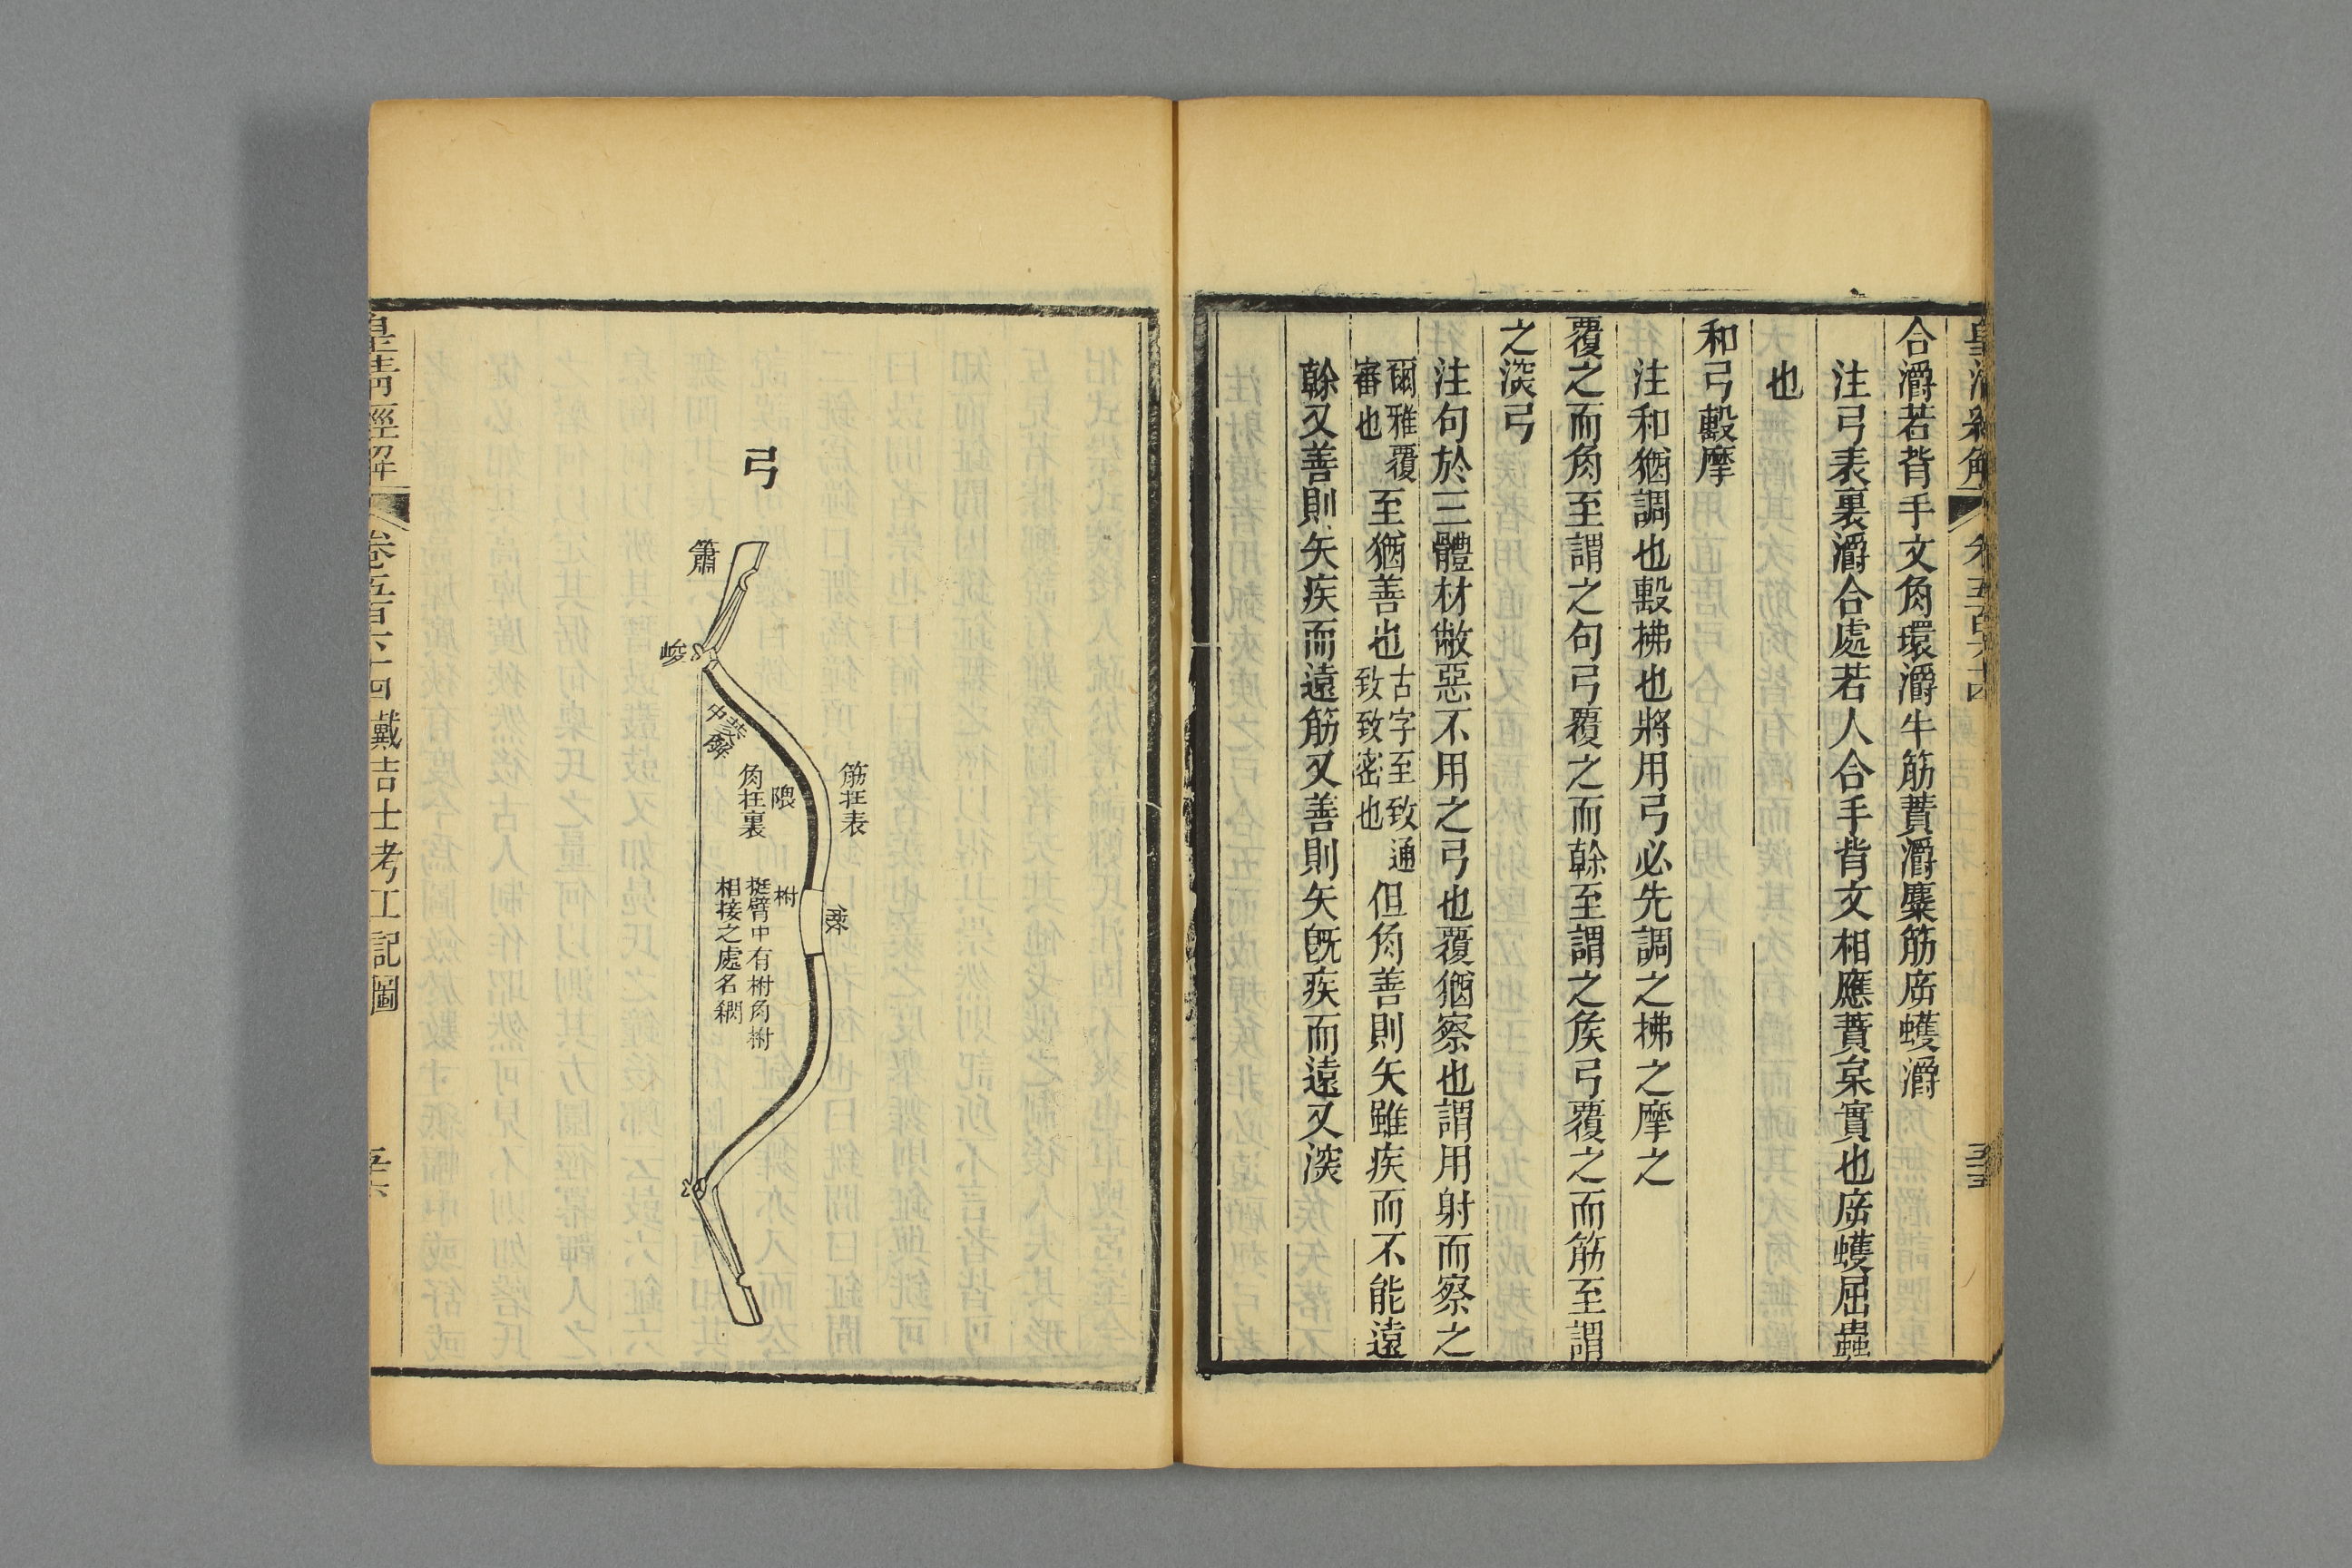 合灂若背手文角環灂牛筋蕡灂麋筋㡿蠖灂
注弓表裏灂合處若人合手背文相應蕡枲實也㡿蠖屈蟲
也
和弓㲉摩
注和猶調也㲉拂也將用弓必先調之拂之摩之
覆之而角至謂之句弓覆之而榦至謂之矦弓覆之而筋至謂
之深弓
注句於三體材敝惡不用之弓也覆猶察也謂用射而察之
爾雅覆
審也
至猶善也
古字至致通
致致密也
但角善則矢雖疾而不能遠
榦又善則矢疾而遠筋又善則矢旣疾而遠又深
弓
簫
峻
茭解
中
隈
角在裏
筋在表
柎
挺臂中有柎角柎
相接之處名㯧
皇淸經解
卷五百六十四
戴吉士考工記圖